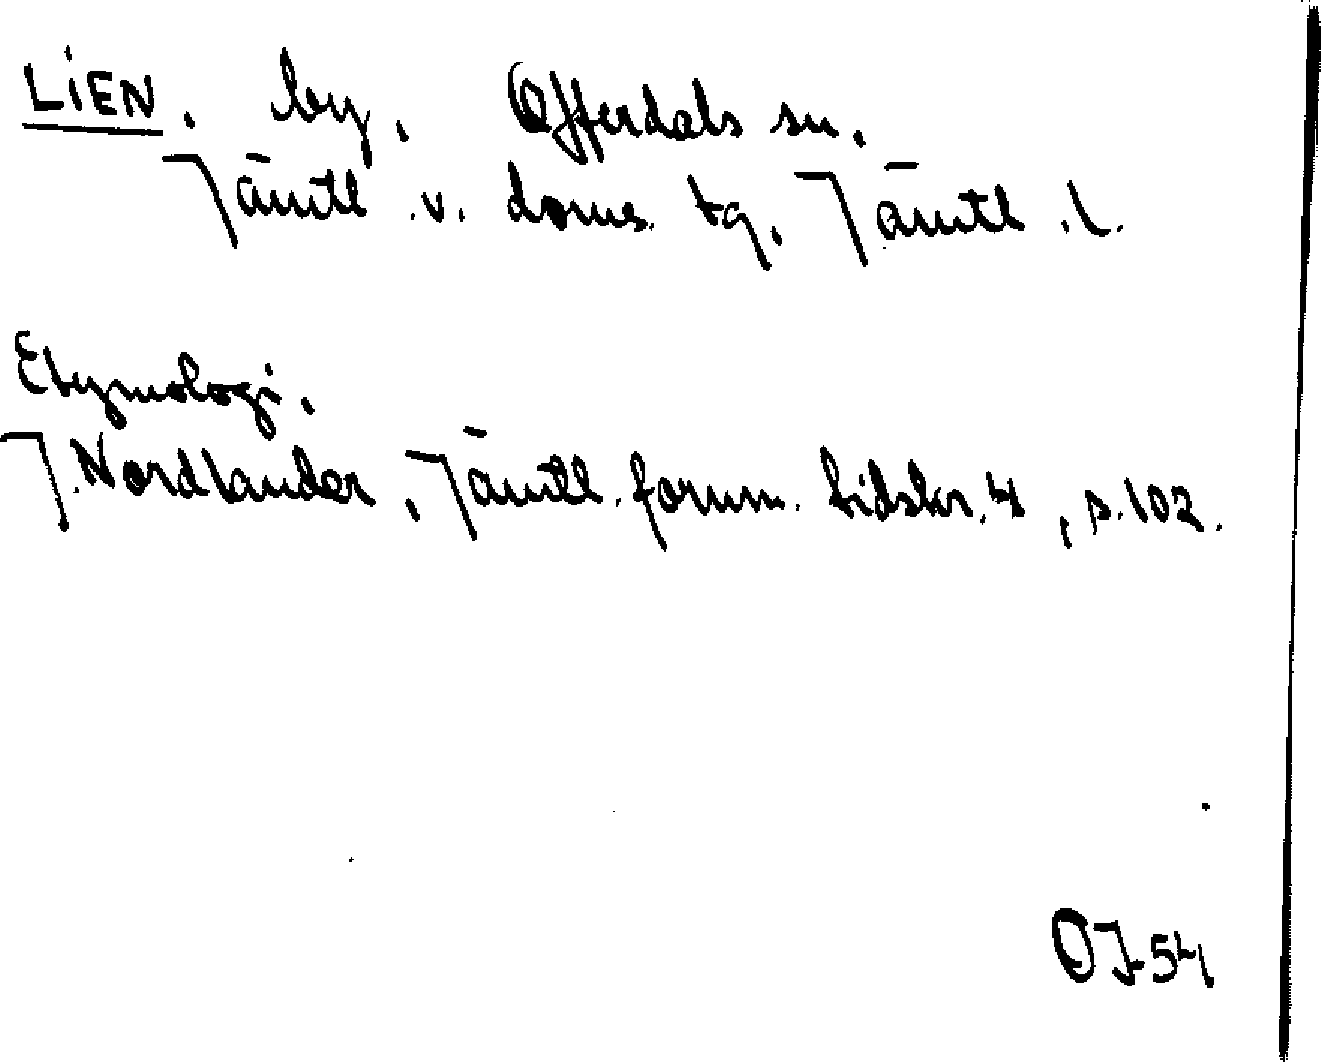 LIEN. by. Offerdals sn.
Jämtl. v. doms. tg. Jämtl. l.
Etymologi.
J. Nordlander, Jämtl. fornm. tidskr. 4, s. 102.
OJ 54